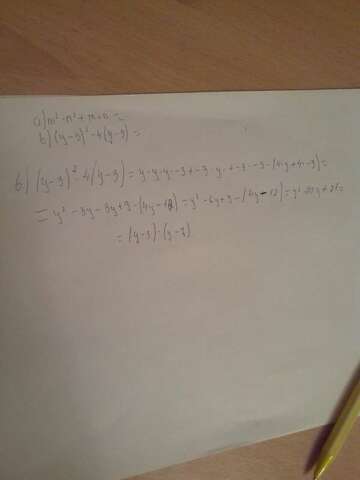 a) m² - n² + m + n =
b) (y-3)² - 4(y-3) =
b) (y-3)² - 4(y-3) = y·y + y·-3 + -3·y + -3·-3 - (4·y + 4·-3) =
= y² - 3y - 3y + 9 - (4y - 12) = y² - 6y + 9 - (4y - 12) = y² - 10y + 21 =
= (y-3)·(y-7)